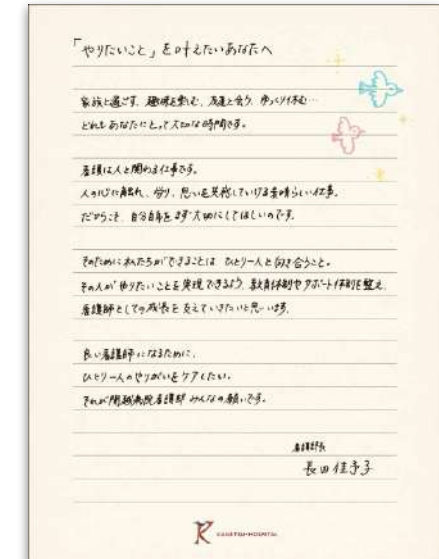 「やりたいこと」を叶えたいあなたへ
家族と過ごす、趣味を楽しむ、友達と会う、ゆっくり休む…
どれもあなたにとって大切な時間です。
看護は人と関わる仕事です。
人の心に触れ、労り、思いを実感していける素晴らしい仕事。
だからこそ、自分自身をまず大切にしてほしいのです。
そのために私たちができることは、ひとり一人と向き合うこと。
その人がやりたいことを実現できるよう、教育体制やサポート体制を整え、
看護師としての成長を支えていきたいと思います。
良い看護師になるために、
ひとり一人のやりがいをケアしたい。
それが関越病院看護部みんなの願いです。
看護部長
長田佳予子
KANETSU-HOSPITAL